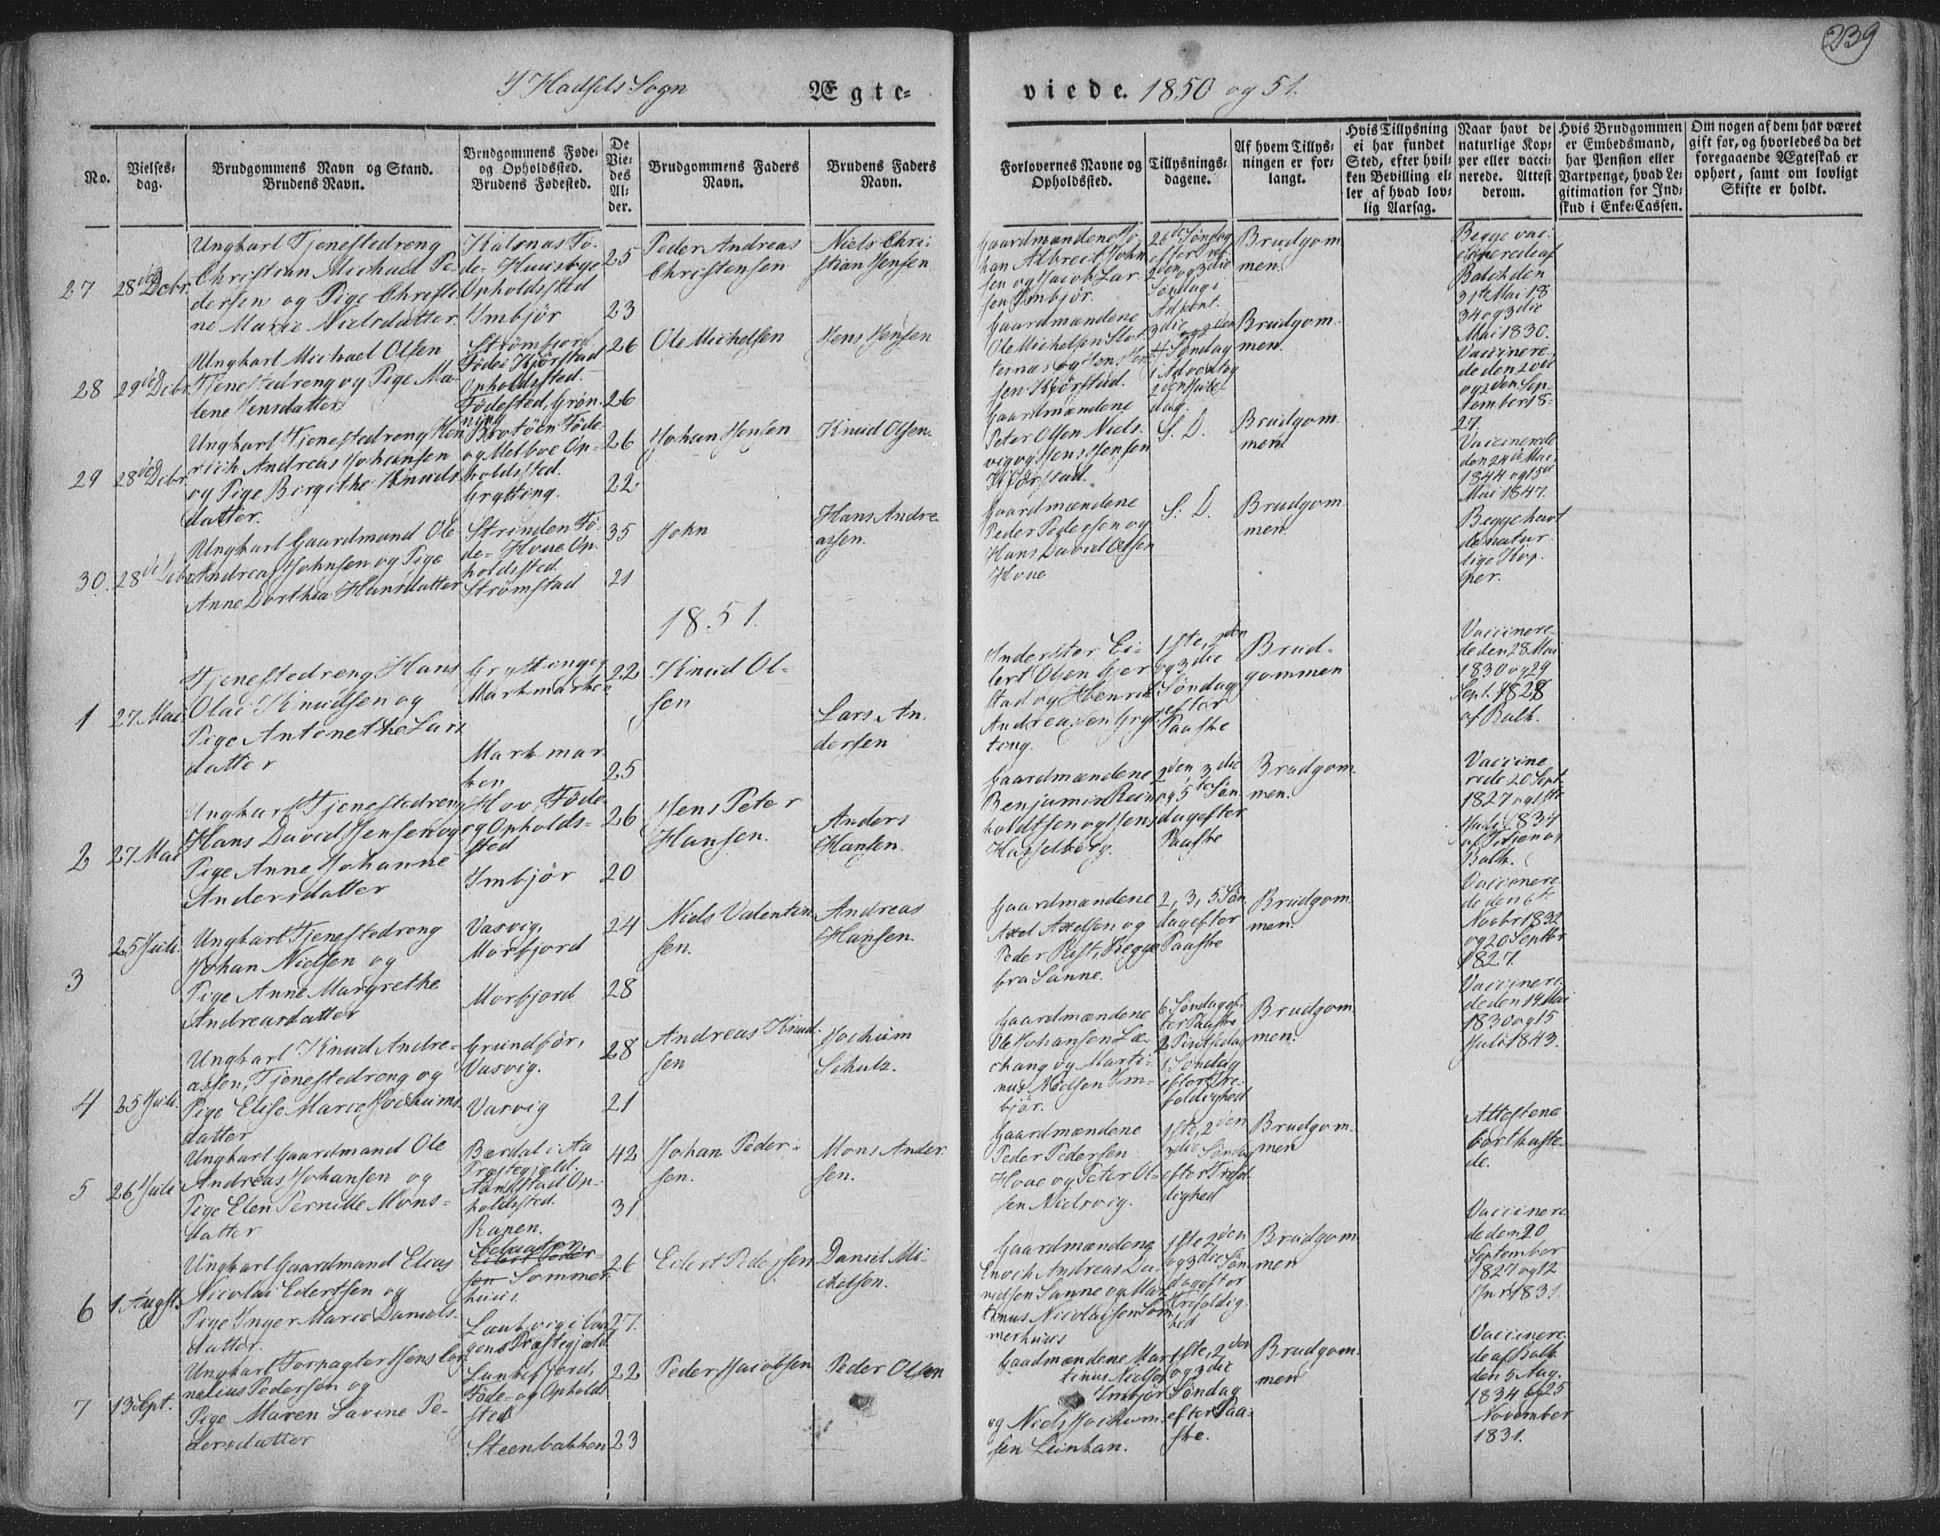 239
I Hadsels Sogn
Ægte-
viede. 1850 og 51.
No.
Vielses-
dag.
Brudgommens Navn og Stand.
Brudens Navn.
Brudgommens Føde-
og Opholdssted.
Brudens Fødested.
De
Vie-
des
Al-
der.
Brudgommens Faders
Navn.
Brudens Faders
Navn.
Forlovernes Navne og
Opholdssted.
Tillysnings-
dagene.
Af hvem Tillys-
ningen er for-
langt.
Hvis Tillysning
ei har fundet
Sted, efter hvil-
ken Bevilling el-
ler af hvad lov-
lig Aarsag.
Naar havt de
naturlige Kop-
per eller vacci-
nerede. Attest
derom.
Hvis Brudgommen
er Embedsmand,
har Pension eller
Vartpenge, hvad Le-
gitimation for Ind-
skud i Enke-Cassen.
Om nogen af dem har været
gift før, og hvorledes da det
foregaaende Ægteskab er
ophørt, samt om lovligt
Skifte er holdt.
27
28de Dcbr.
Ungkarl Tjenestedreng
Christian Michael Pe-
dersen og Pige Christi-
ne Marie Nielsdatter
Opholdsted
Imbjör
25
23
Peder Andreas
Christensen
Niels Chri-
stian Jensen
Gaardmændene Jo-
han Albreit John
sen og Jacob Lar
sen Imbjør.
26de Søndag
efter
2den og 3die
Søndag i
Advent.
Brudgom
men.
Begge vac-
cinerede af
Balch den
31te Mai 18
34 og 3die
Mai 1830.
28
29de Dcbr.
Ungkarl Michael Olsen
Tjenestedreng og Pige Ma-
lene Jensdatter
Strömfjord
Føde Kjörstad
Opholdsted.
Födested, Grön-
ning
26
26
Ole Michelsen
Jens Jensen
Gaardmændene
Ole Michelsen
sen Kjörstad.
3die og 2den
4 Søndag
i Advent og
2den Jule
dag.
Brudgom
men.
Vaccinere-
de den 2die
og 2den Sep-
tember 18-
27.
29
28de Dcbr.
Ungkarl Tjenestedreng Hen
rich Andreas Johansen
og Pige Birgithe Knuds
datter.
Brotöen Føde
og Melboe Op-
holdssted.
Grytting.
26
22
Johan Jensen
Knud Olsen.
Gaardmændene
Peter Olsen Niels-
vig og Jens Jensen
Kjörstad.
S. D.
Brudgom
men
Vaccinerede
den 24de Mai
1844 og 15de
Mai 1847.
30.
28de Dcbr.
Ungkarl Gaardmand Ole
Andreas Johnsen og Pige
Anne Dorthea Hansdatter
Strinden Fö-
de- Hove Op-
holdssted.
Strømstad
35
21
John
Hans Andre
assen.
Gaardmændene
Peder Pedersen og
Hans David Olsen
Hove
S. D.
Brudgom
men
Begge havt
de natur-
lige Kop-
per.
1851.
1
27 Mai
Tjenestedreng Hans
Olai Knudsen og
Pige Antonethe Lars
datter
Grytting og
Markmarken
Markmar
ken
22
25
Knud Ol-
sen
Lars An-
dersen
Inderster Ei-
lert Olsen Gjer
stad og Henrik
Andreasen Gryt-
ting.
1ste, 2den
og 3die
Søndag
efter
Paaske
Brud-
gommen
Vaccinere
de den 28 Mai
1830 og 29
Sept. 1828
af Balk.
2
27 Mai
Ungkarl Tjenestedreng
Hans David Jensen og
Pige Anne Johanne
Andersdatter
Hov, Føde-
og Opholds-
sted
Imbjör
26
20
Jens Peter
Hansen.
Anders
Hansen.
Gaardmændene
Benjamin Rein
holdtsen og Jens
Hasselberg.
2den 3die
og 5te Søn-
dag efter
Paaske
Brudgom
men.
Vaccine
rede 20 Sept.
1827 og 1ste
Juli 1834
Balk.
3
25 Juli
Ungkarl Tjenestedreng
Johan Nielsen og
Pige Anne Margrethe
Andreasdatter
Vasvig,
Morfjord
Morfjord
24
28
Niels Valentin
sen.
Andreas
Hansen.
Gaardmændene
Axel Axelsen og
Peder Rist, Begge
fra Sanne.
2, 3, 5 Søn
dag efter
Paaske
Brudgom
men.
Vaccinere
de den 6te
Novbr 1832
og 20 Septbr
1827.
4
25 Juli.
Ungkarl Knud Andre-
assen, Tjenestedreng og
Pige Elise Marie Jochums
datter
Grundför,
Vasvig.
Varvig
28
21
Andreas Knud-
sen
Jochum
Schulz.
Gaardmændene
Ole Johansen Læ-
chang og Marti-
nus Nielsen Im-
björ.
6. Søndag ef-
ter Paaske
2 Pintsedag
1 Søndag
efter Tre-
foldighed
Brudgom
men.
Vaccinere
de den 19 Mai
1830 og 15
Juli 1843.
5
26 Juli
Ungkarl Gaardmand Ole
Andreas Johansen og
Pige Elen Pernille Mons-
datter
Bærdal i Aa
Præstegjeld.
Op-
holdssted.
Ranen.
42
31
Johan Peder-
sen.
Mons Ander
sen.
Gaardmændene
Peder Pedersen
Hove og Peter Ol-
sen Nielsvig.
1ste, 2den
3die Søndag
efter Trefol
dighed
Brudgom
men
Attesterne
bortkaste-
de.
6
1 Augst.
Ungkarl Gaardmand Elias
Nicolai Edertsen og
Pige Inger Marie Daniels-
datter.
Sommer-
huus.
Laukvig i Vaa
gens Præstegjæld
26
27.
Edert Pedersen
Daniel Mi-
chelsen.
Gaardmændene
Enoch Andreas Da-
nielsen Sanne og Mar
tinus Nicolaisen Som
merhuus
1ste 2den
og 3die Søn
dag efter
Trefoldig-
hed
Brudgom
men
Vaccinere
de den 20
September
1827 og 12
Juni 1831.
7
13 Sept.
Ungkarl Forpagter Jens Cor
nelius Pedersen og
Pige Maren Lavine Pe-
dersdatter
Lunkefjord,
Föde- og Opholds
sted
Steenbakken
22
23
Peder Jacobsen
Peder Olsen
Gaardmændene Mar
tinus Nielsen
Imbjör
og Niels Jochum-
sen Leinkan.
1ste, 2den
og 3die
Søndag
efter Paa-
ske.
Brudgom
men
Vaccinere-
de af Balk
den 5 Aug.
1834 og 25
November
1831.